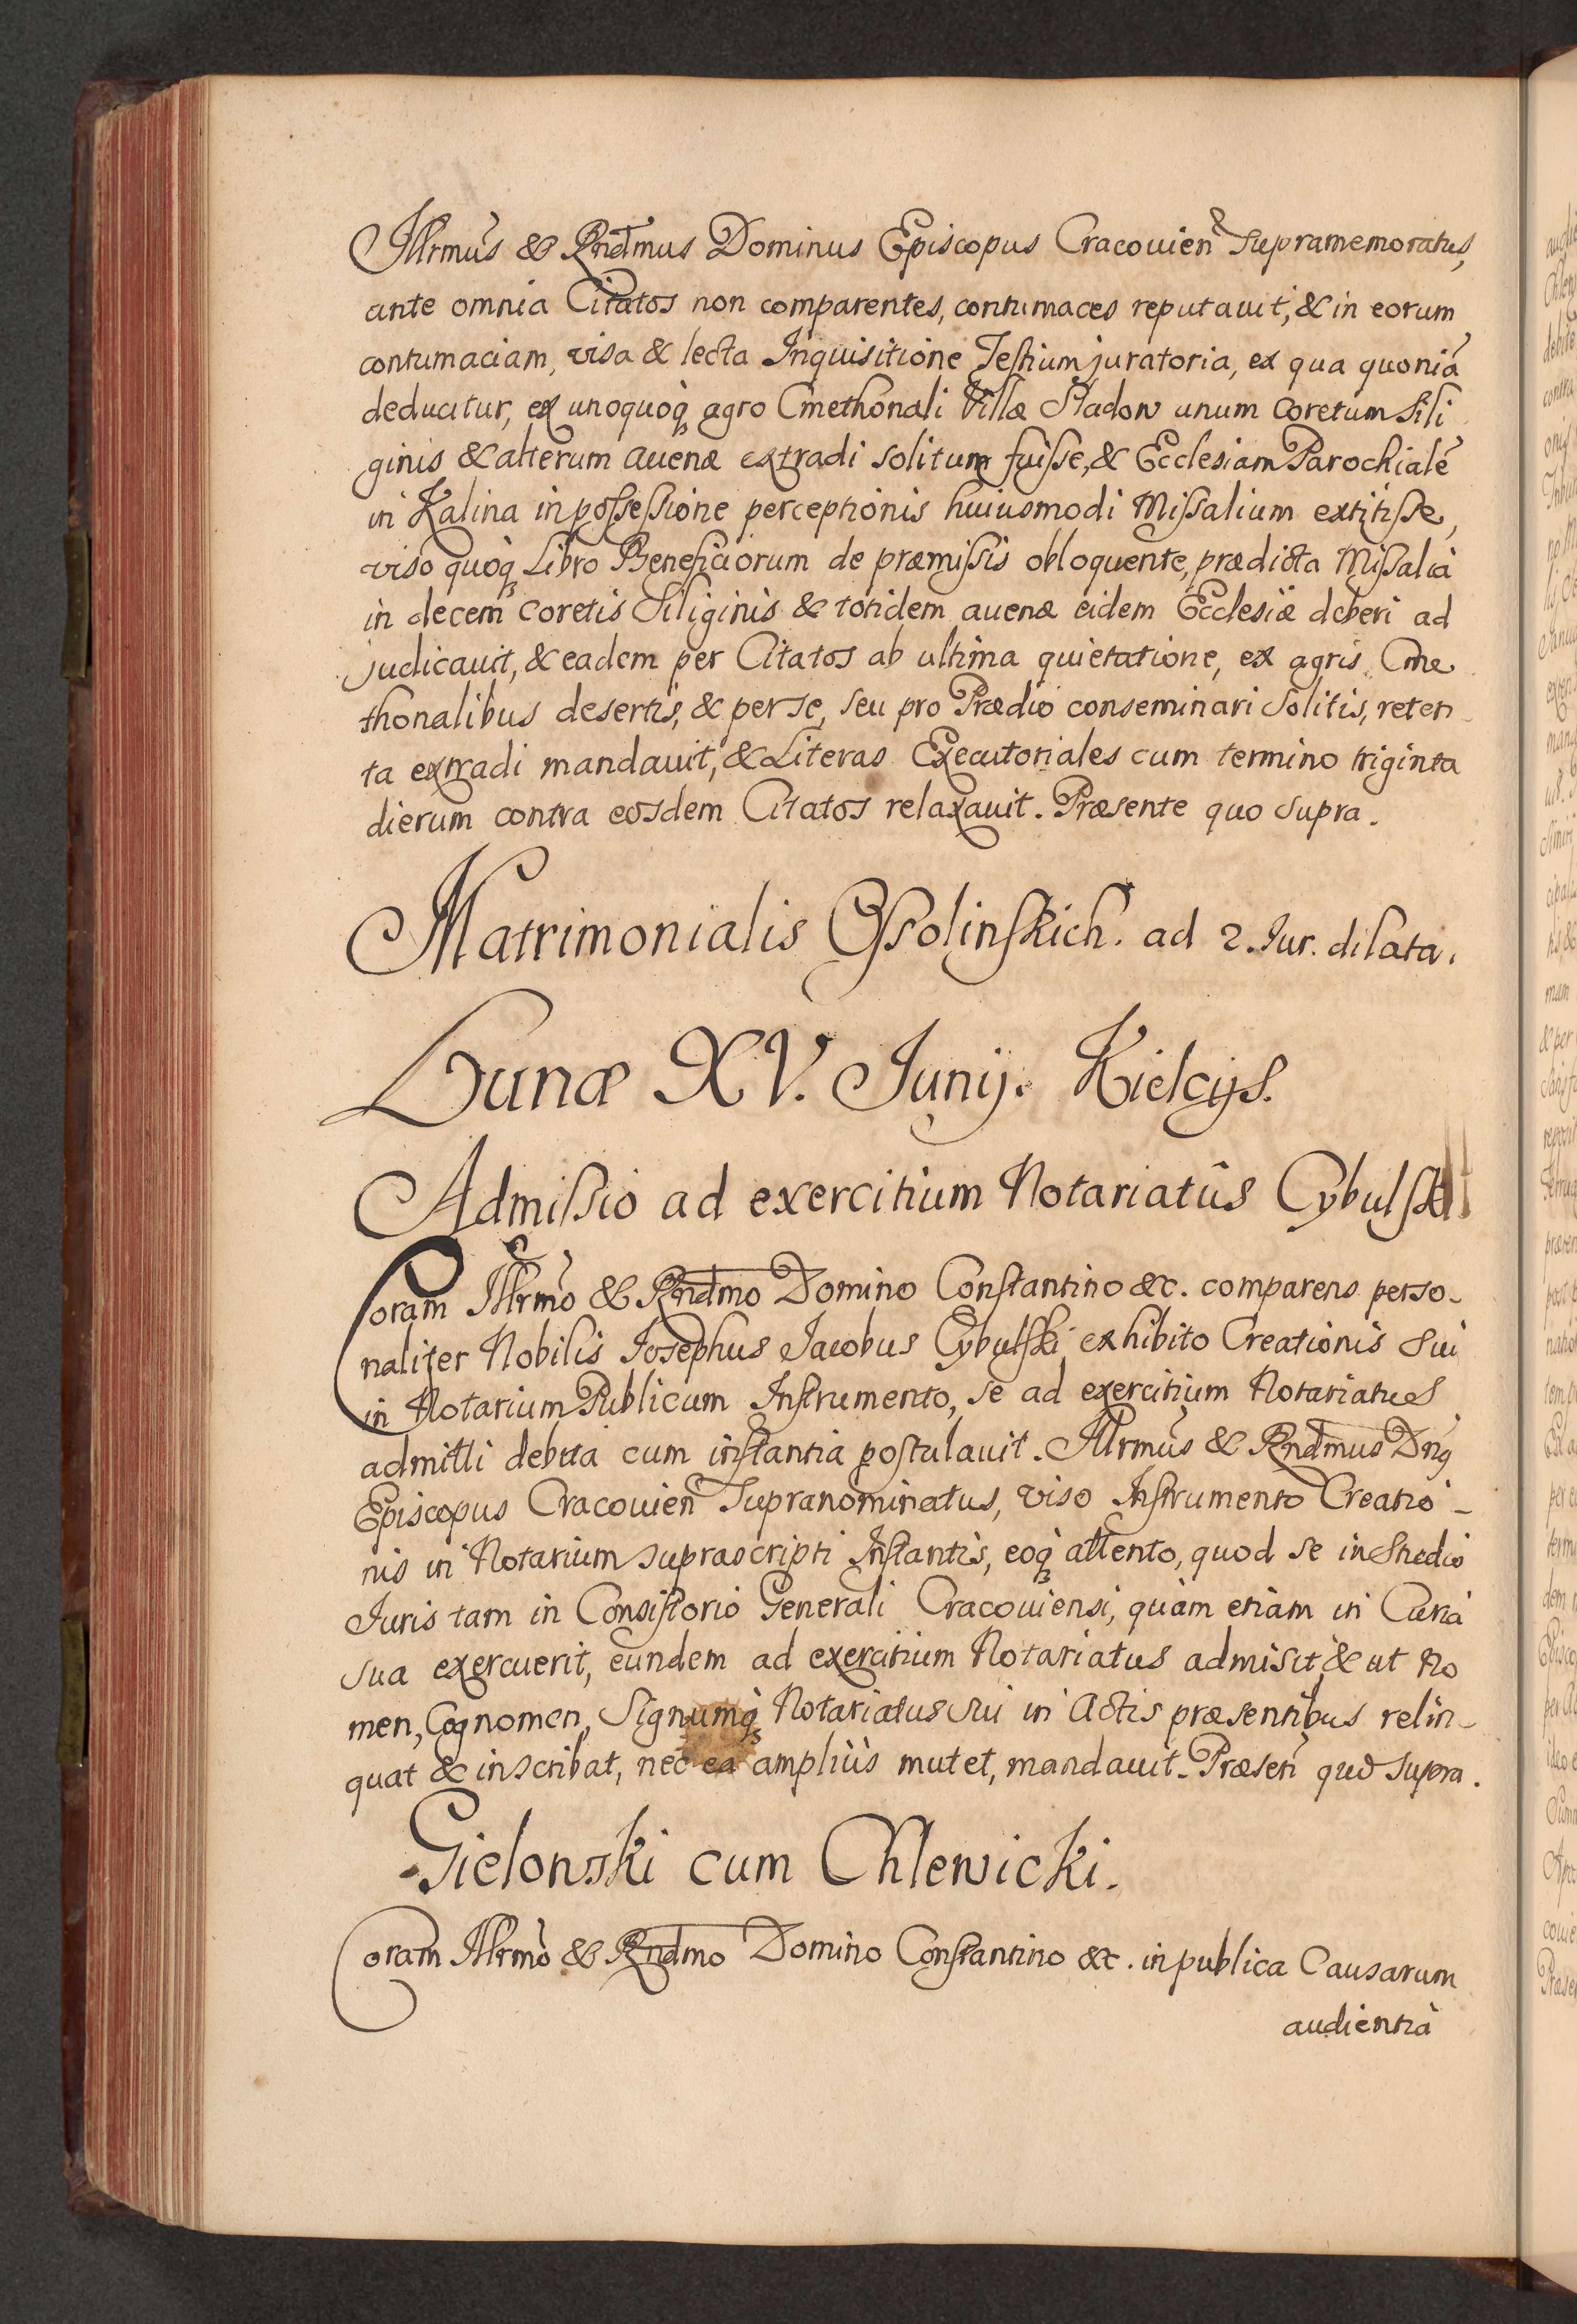 Illrmus & Rndmus Dominus Episcopus Cracouien Supramemoratus,
ante omnia Citatos non comparentes, contumaces reputauit, & in eorum
contumaciam, visa & lecta Inquisitione Testium juratoria, ex qua quoniã
deducitur, ex unoquoq; agro Cmethonali Villæ Sladow unum coretum Sili
ginis & alterum auenæ extradi solitum fuisse, & Ecclesiam Parochialẽ
in Kalina in possessione perceptionis huiusmodi Missalium extitisse,
viso quoq; Libro Beneficiorum de præmissis obloquente, prædicta Missalia
in decem coretis Siliginis & totidem auenæ eidem Ecclesiæ deberi ad
judicauit, & eadem per Citatos ab ultima quietatione, ex agris Cme
thonalibus desertis, & per se, seu pro Prædio conseminari solitis, reten
ta extradi mandauit, & Literas Executoriales cum termino triginta
dierum contra eosdem Citatos relaxauit. Præsente quo supra.
Matrimonialis Ossolinskich. ad 2. Iur. dilata.
Lunæ XV. Junij. Kielcijs.
Admissio ad exercitium Notariatûs Cybulski
Coram Illrmo & Rndmo Domino Constantino &c. comparens perso-
naliter Nobilis Josephus Jacobus Cybulski exhibito Creationis sui
in Notarium Publicum Instrumento, se ad exercitium Notariatus
admitti debita cum instantia postulauit. Illrmus & Rndmus Dnꝰ
Episcopus Cracouien Supranominatus, viso Instrumento Creatio-
nis in Notarium suprascripti Instantis, eoq; attento, quod se in Studio
Juris tam in Consistorio Generali Cracouiensi, quàm etiam in Curia
sua exercuerit, eundem ad exercitium Notariatus admisit, & ut No
men, Cognomen, Signumq; Notariatus sui in Actis præsentibus relin-
quat & inscribat, nec ea ampliùs mutet, mandauit. Præsen quo supra.
Gielowski cum Chlewicki.
Coram Illrmo & Rndmo Domino Constantino &c. in publica Causarum
audientia